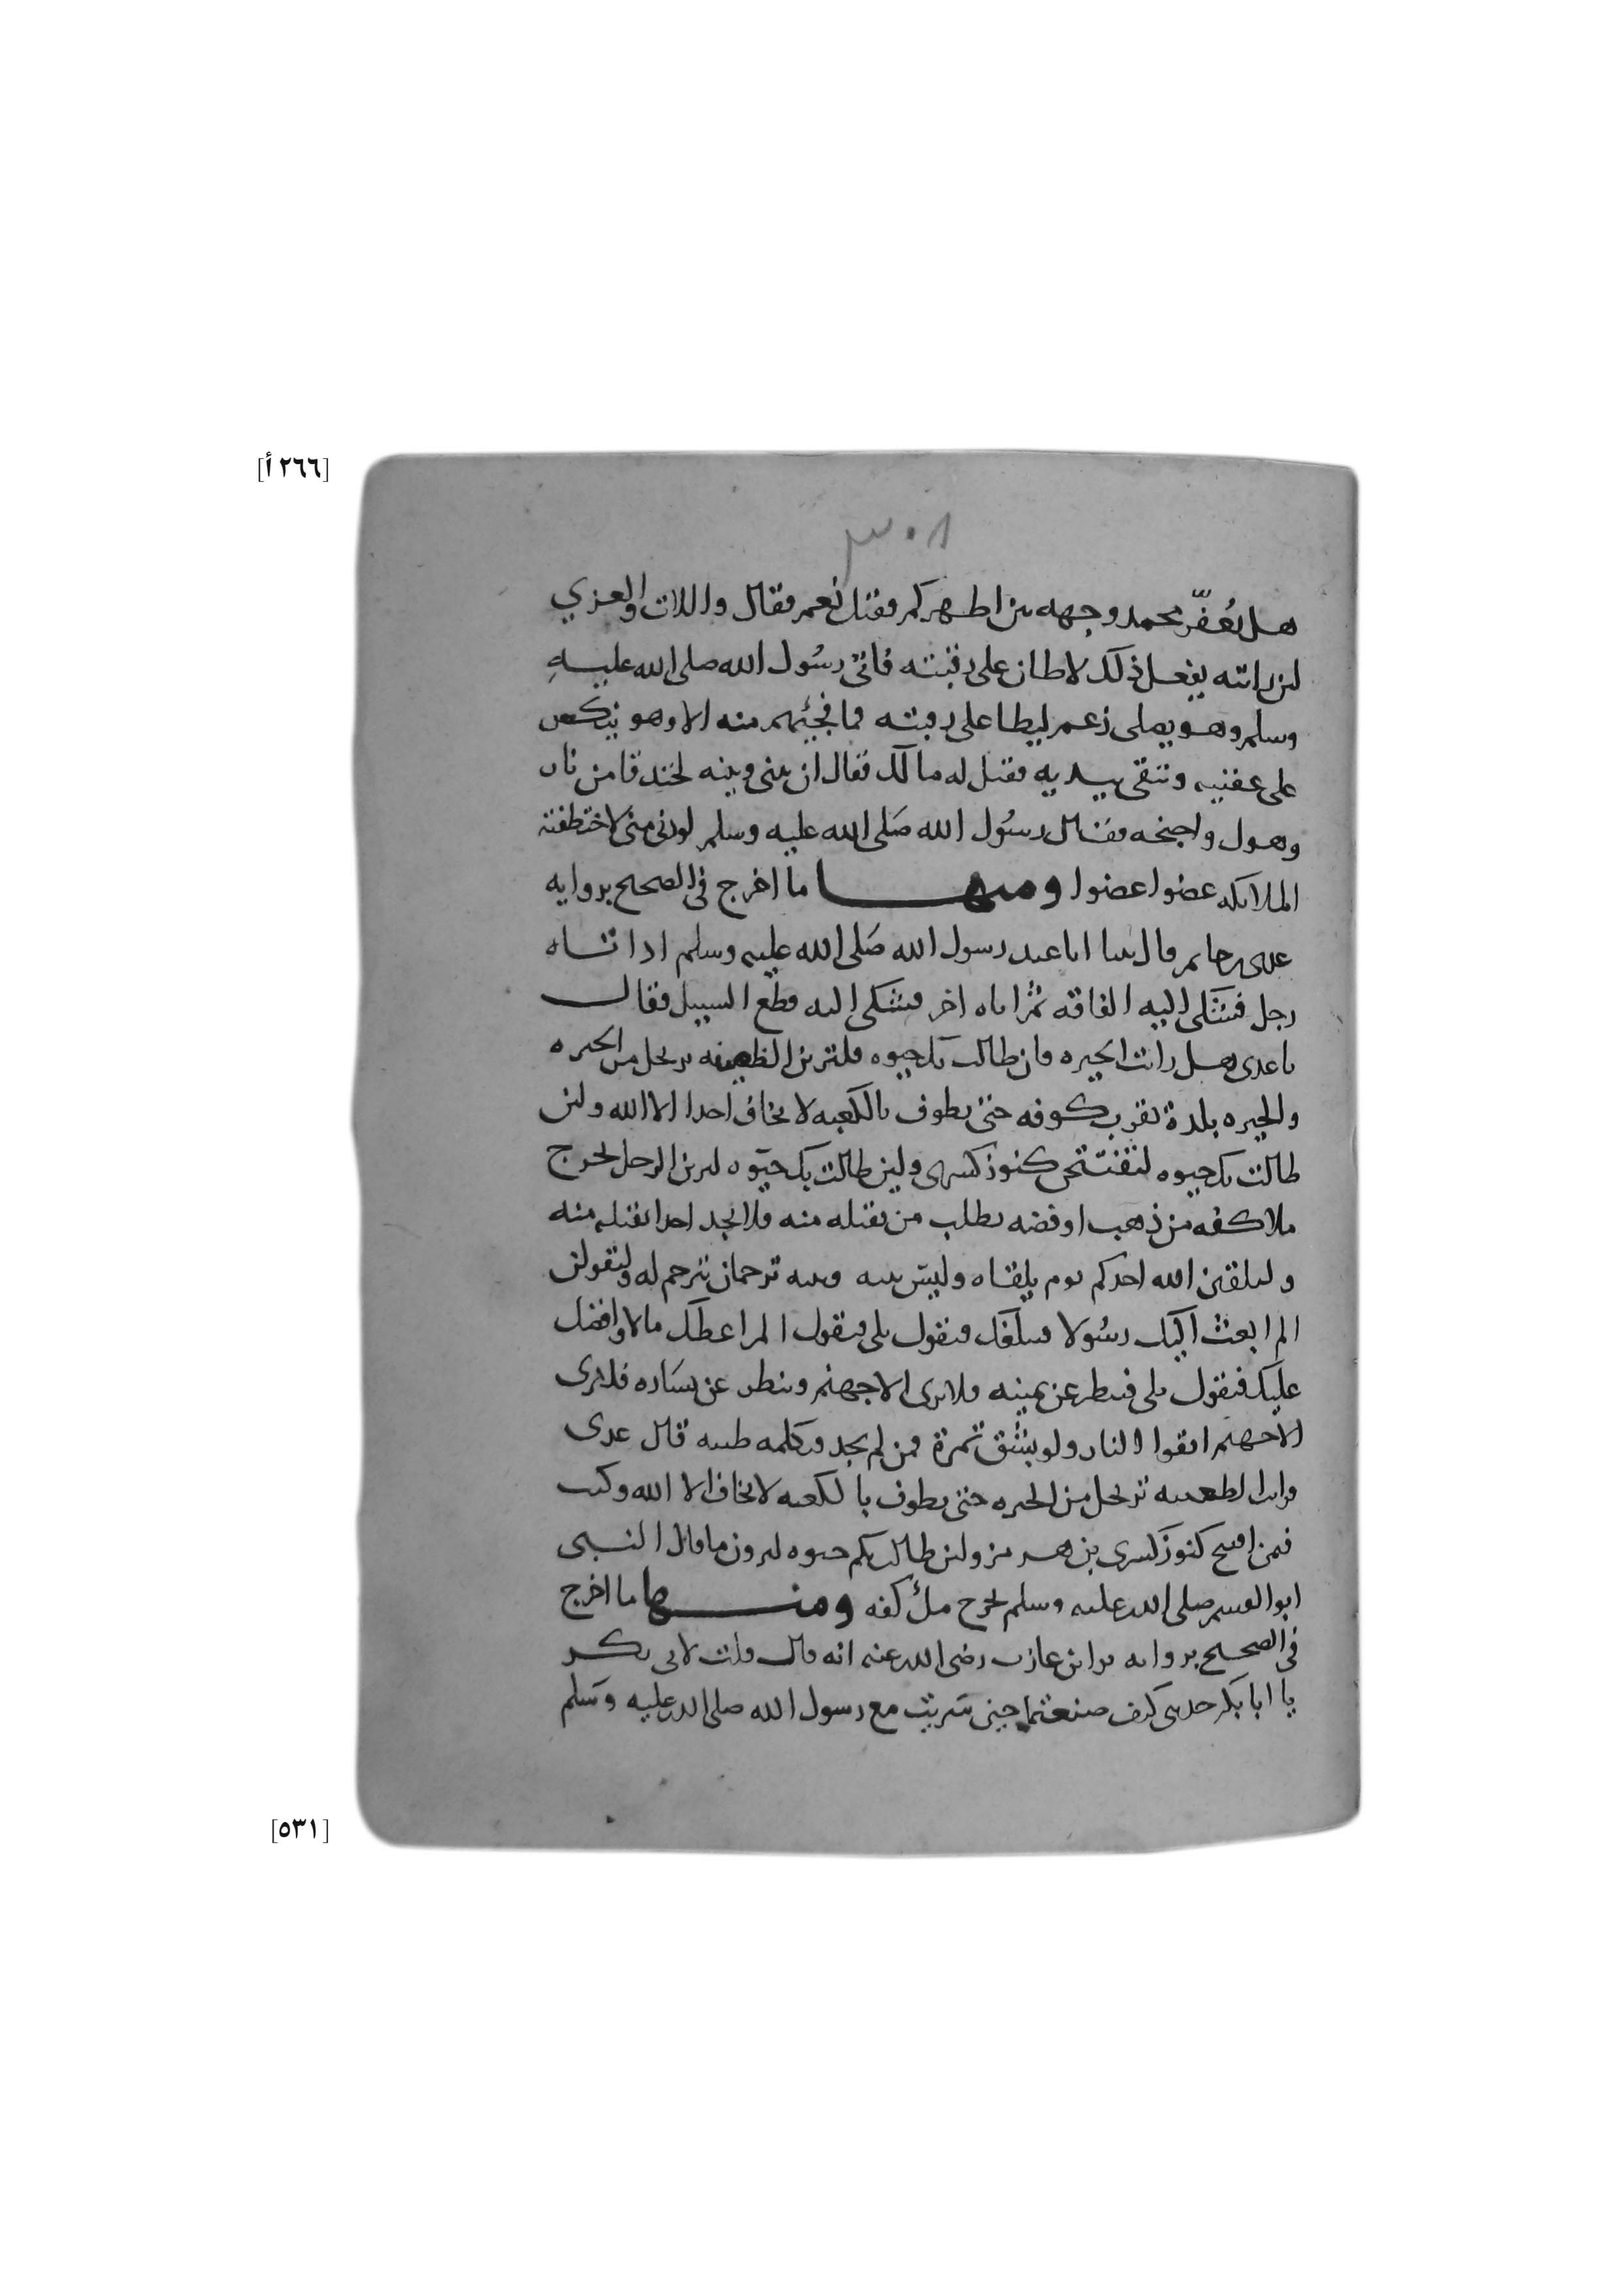 [٢٦٦ أ]
٣٠٨
هل يُعَفّر محمد وجهه بين اظهركم فقيل نعم فقال واللات والعزي
لئن رايته يفعل ذلك لاطان على رقبته فاتى رسُول الله صلى الله عليهِ
وسلم وهو يصلى زعم ليطا على رقبته فما فجئهم منه الا وهو ينكص
على عقبيه ويتقى بيديه فقيل له مالك فقال ان بينى وبينه لخندقا من نار
وهول واجنحه فقال رسُول الله صَلى الله عليه وسلم لودنى منى لاختطفته
الملايكه عضوا عضوا ومنها ما اخرج فى الصحيح بروايه
عدى بن حاتم قال بينا انا عند رسول الله صَلى الله عليه وسلم اذا تـاه
رجل فشكى اليه الفاقه ثم اتاه اخر فشكى اليه قطع السبيل فقال
يا عدى هل رايت الحيره فان طالت بك حيوه فلترين الظعينه ترتحل من الحيره
والحيره بلدة بقرب كوفه حتى يطوف بالكعبه لا يخاف احدا الا الله ولئن
طالت بك حيوه لتفتتحن كنوز كسرى ولين طالت بك حيوه لترين الرجل يخرج
ملا كفه من ذهب او فضه يطلب من يقبله منه فلا يجد احدا يقبله منه
وليلقين الله احدكم يوم يلقاه وليس بينه وبينه ترجمان يترجم له وليقولن
الم ابعث اليك رسُولا فيبلغك فيقول بلى فيقول الم اعطك مالا وافضل
عليك فيقول بلى فينظر عن يمينه فلا يرى الا جهنم وينظر عن يسَاره فلا يرى
الا جهنم اتقوا النار ولو بشق تمرة فمن لم يجد فبكلمه طيبه قال عدى
فرايت الظعينه ترتحل من الحيره حتى يطوف بالكعبه لا يخاف الا الله وكنت
فمن افتتح كنوز كسرى بن هرمز ولئن طالت بكم حيوه لترون ما قال النبى
ابو القسم صلى الله عليه وسلم يخرج ملأ كفه ومنها ما اخرج
فى الصحيح بروايه برا بن عازب رضى الله عنه انه قال قلت لابى بكر
يا ابا بكر حدثنى كيف صنعتما حين سَريت مع رسول الله صلى الله عليه وسَلم
[٥٣١]